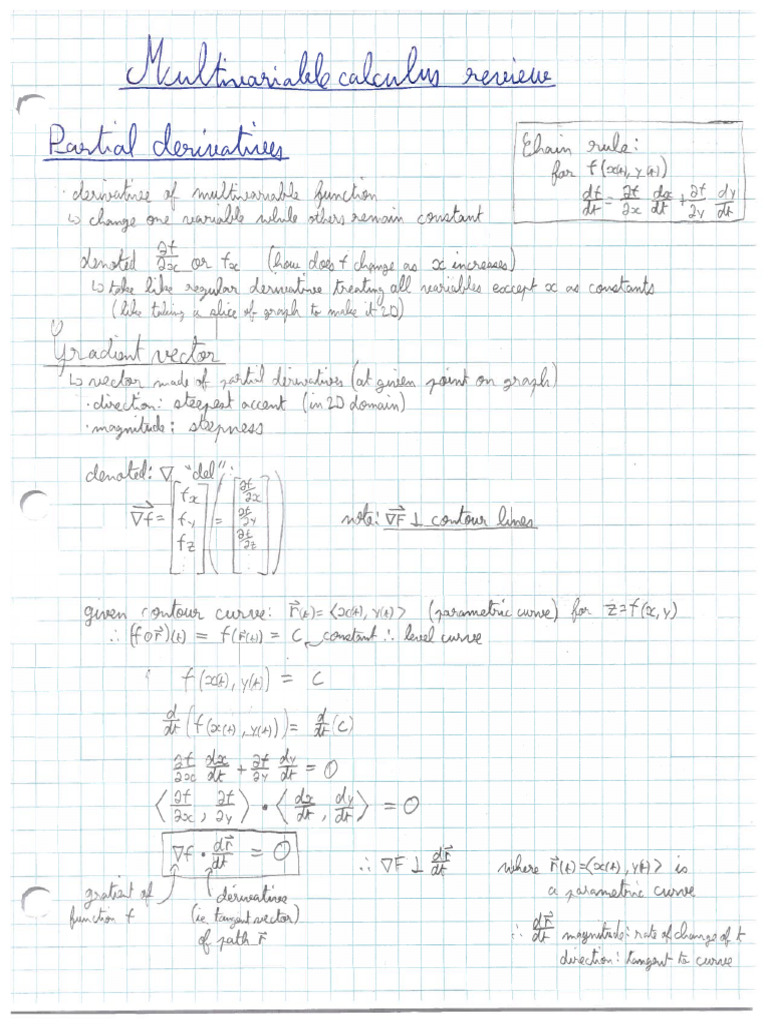 Multivariable calculus review
Partial derivatives
Chain rule:
for f(x(t), y(t))
df/dt = ∂f/∂x dx/dt + ∂f/∂y dy/dt
· derivative of multivariable function
↳ change one variable while others remain constant
denoted ∂f/∂x or fx (how does f change as x increases)
↳ take like regular derivative treating all variables except x as constants
(like taking a slice of graph to make it 2D)
Gradient vector
↳ vector made of partial derivatives (at given point on graph)
· direction: steepest accent (in 2D domain)
· magnitude: steepness
denoted: ∇ "del":
∇f = [fx fy fz ⋮] (= [∂f/∂x ∂f/∂y ∂f/∂z ⋮])
note: ∇F ⊥ contour lines
given contour curve: r⃗(t) = <x(t), y(t)> (parametric curve) for z = f(x, y)
∴ (f∘r⃗)(t) = f(r⃗(t)) = C ← constant ∴ level curve
f(x(t), y(t)) = C
d/dt (f(x(t), y(t))) = d/dt (C)
∂f/∂x dx/dt + ∂f/∂y dy/dt = 0
⟨∂f/∂x, ∂f/∂y⟩ • ⟨dx/dt, dy/dt⟩ = 0
∇f • dr⃗/dt = 0
∴ ∇F ⊥ dr⃗/dt
where r⃗(t) = <x(t), y(t)> is
a parametric curve
gratient of
function f
derivative
(ie. tangent vector)
of path r⃗
∴ dr⃗/dt magnitude: rate of change of t
direction: tangent to curve